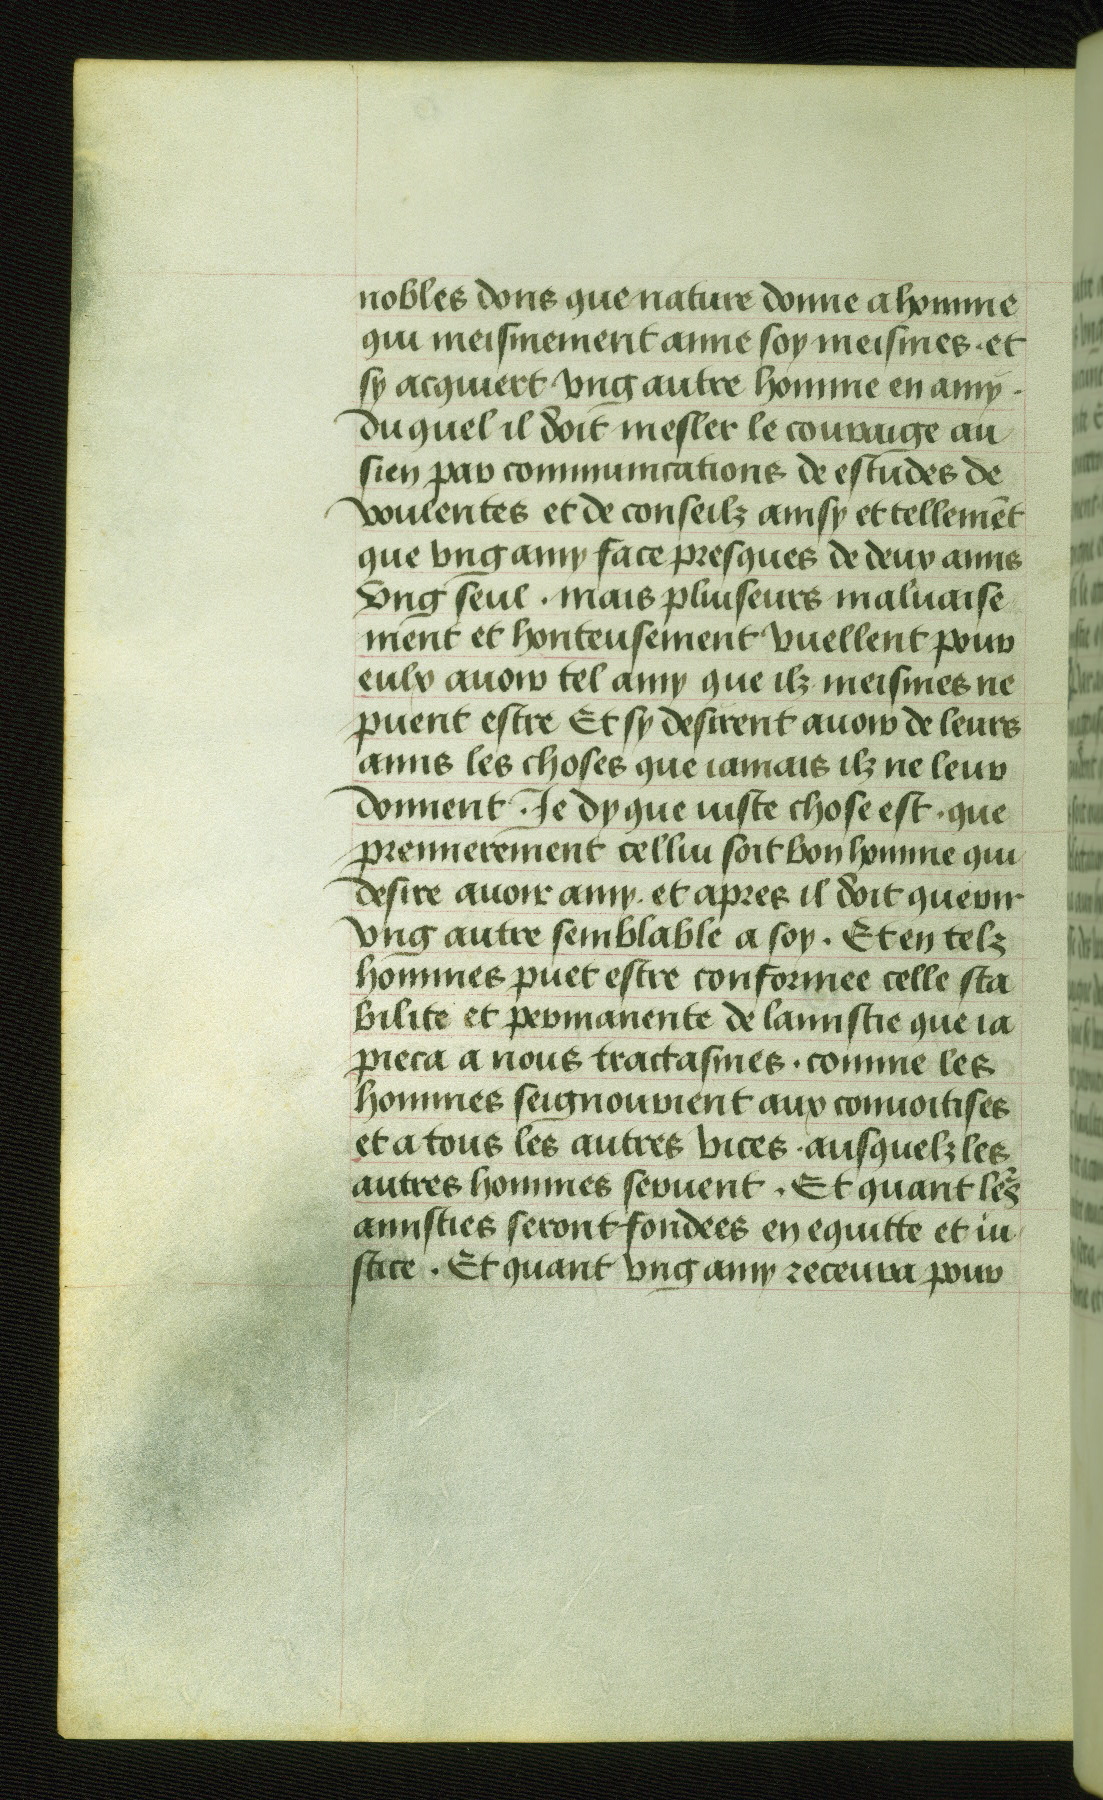 nobles dons que nature donne a homme
qui meismement aime soy meismes . et
sy acquiert vng autre homme en amy .
du quel il doit mesler le couraige au
sien par communications de estudes de
voulentes et de conseilz ainsy et tellemẽt
que vng amy face presques de deux amis
vng seul . mais pluiseurs maluaise
ment et honteusement vuellent pour
eulx auoir tel amy que ilz meismes ne
puent estre Et sy desirent auoir de leurs
amis les choses que iamais ilz ne leur
donnent . Je dy que iuste chose est . que
premierement cellui soit bon homme qui
desire auoir amy . et apres il doit querir
vng autre semblable a soy . Et en telz
hommes puet estre conformee celle sta
bilite et permanente de lamistie que ia
pieca a nous tractasmes . comme les
hommes seignourient aux conuoitises
et a tous les autres vices . ausquelz les
autres hommes seruent . Et quant le᷒z
amisties seront fondees en equitte et iu
stice . Et quant vng amy receura pour